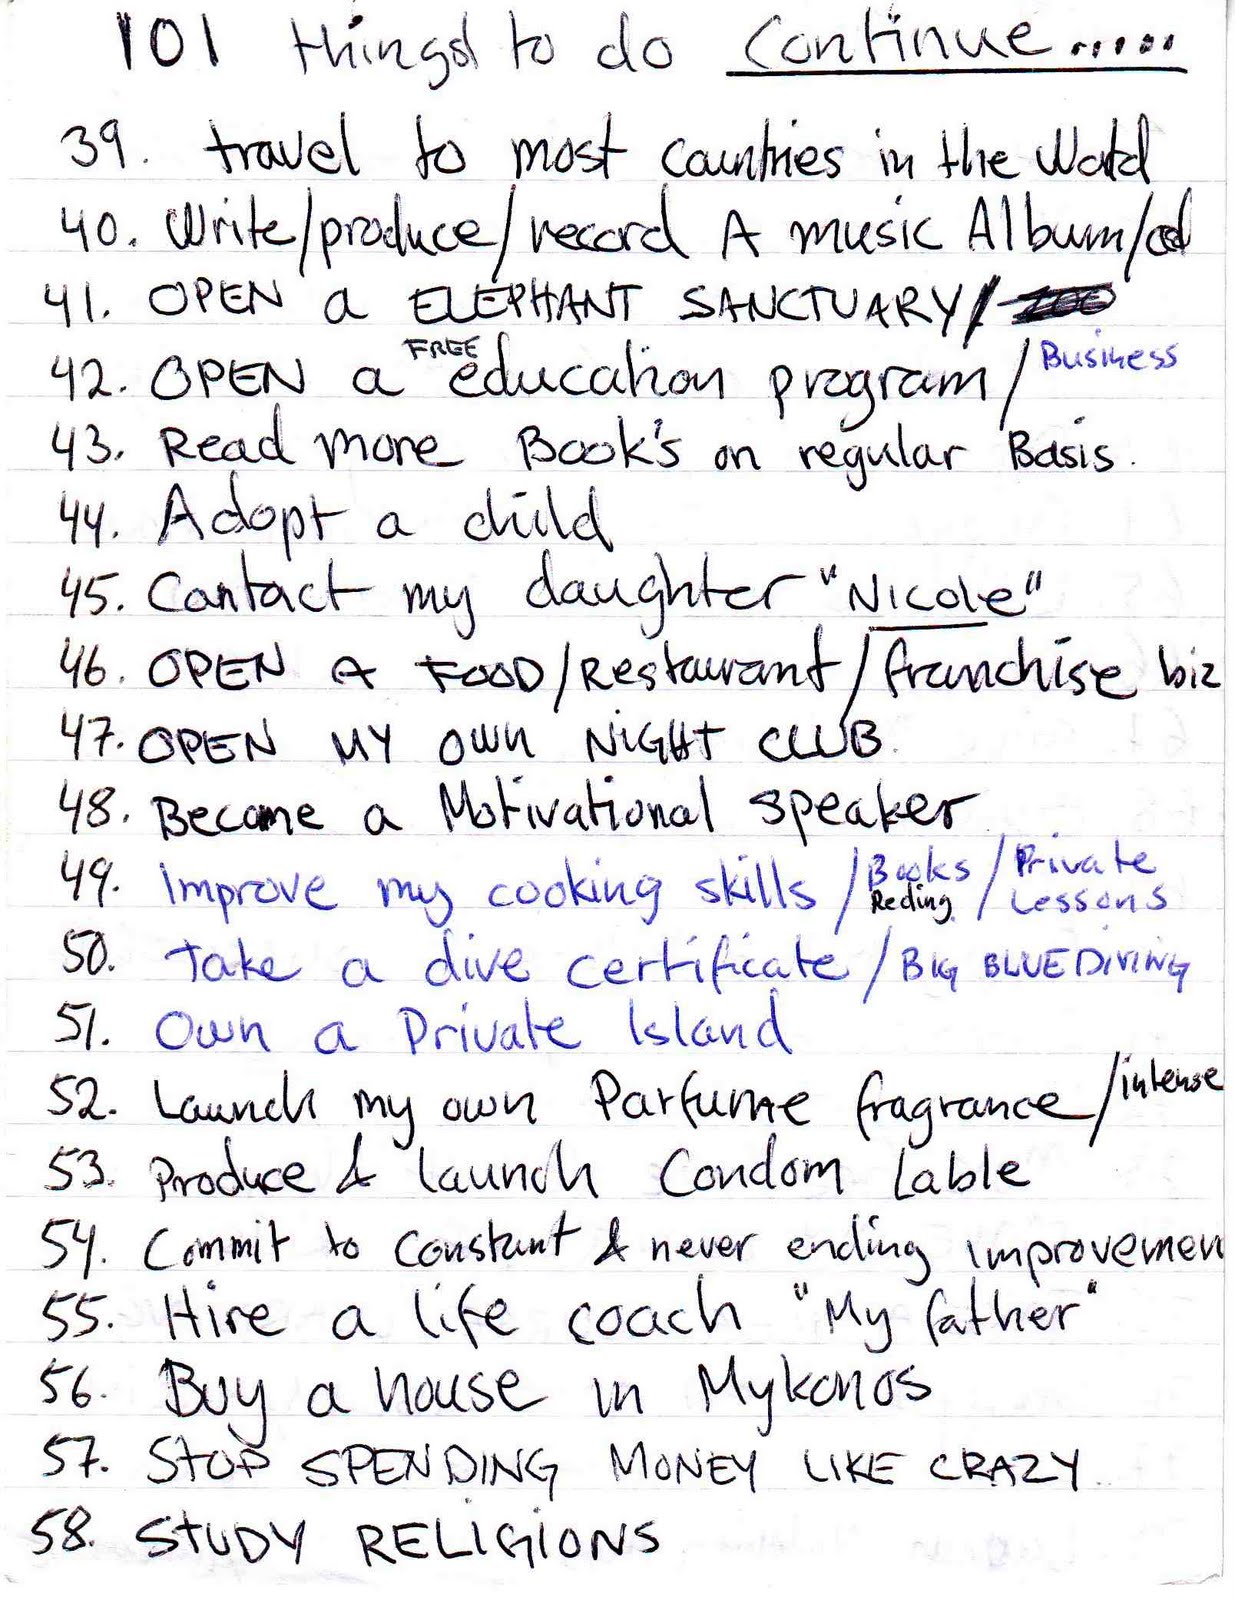 101 things to do Continue.....
39. travel to most countries in the World
40. Write/produce/record A music Album/cd
41. OPEN a ELEPHANT SANCTUARY/
42. OPEN a FREE education program/ Business
43. Read more Book's on regular Basis.
44. Adopt a child
45. Contact my daughter "Nicole"
46. OPEN A FOOD/Restaurant/franchise biz
47. OPEN MY OWN NIGHT CLUB.
48. Become a Motivational speaker
49. Improve my cooking skills /Books Reding /Private Lessons
50. Take a dive certificate / BIG BLUE DIVING
51. Own a Private Island
52. Launch my own Parfume fragrance/intense
53. Produce & launch Condom Lable
54. Commit to constant & never ending improvemen
55. Hire a life coach "My father"
56. Buy a house in Mykonos
57. STOP SPENDING MONEY LIKE CRAZY
58. STUDY RELIGIONS